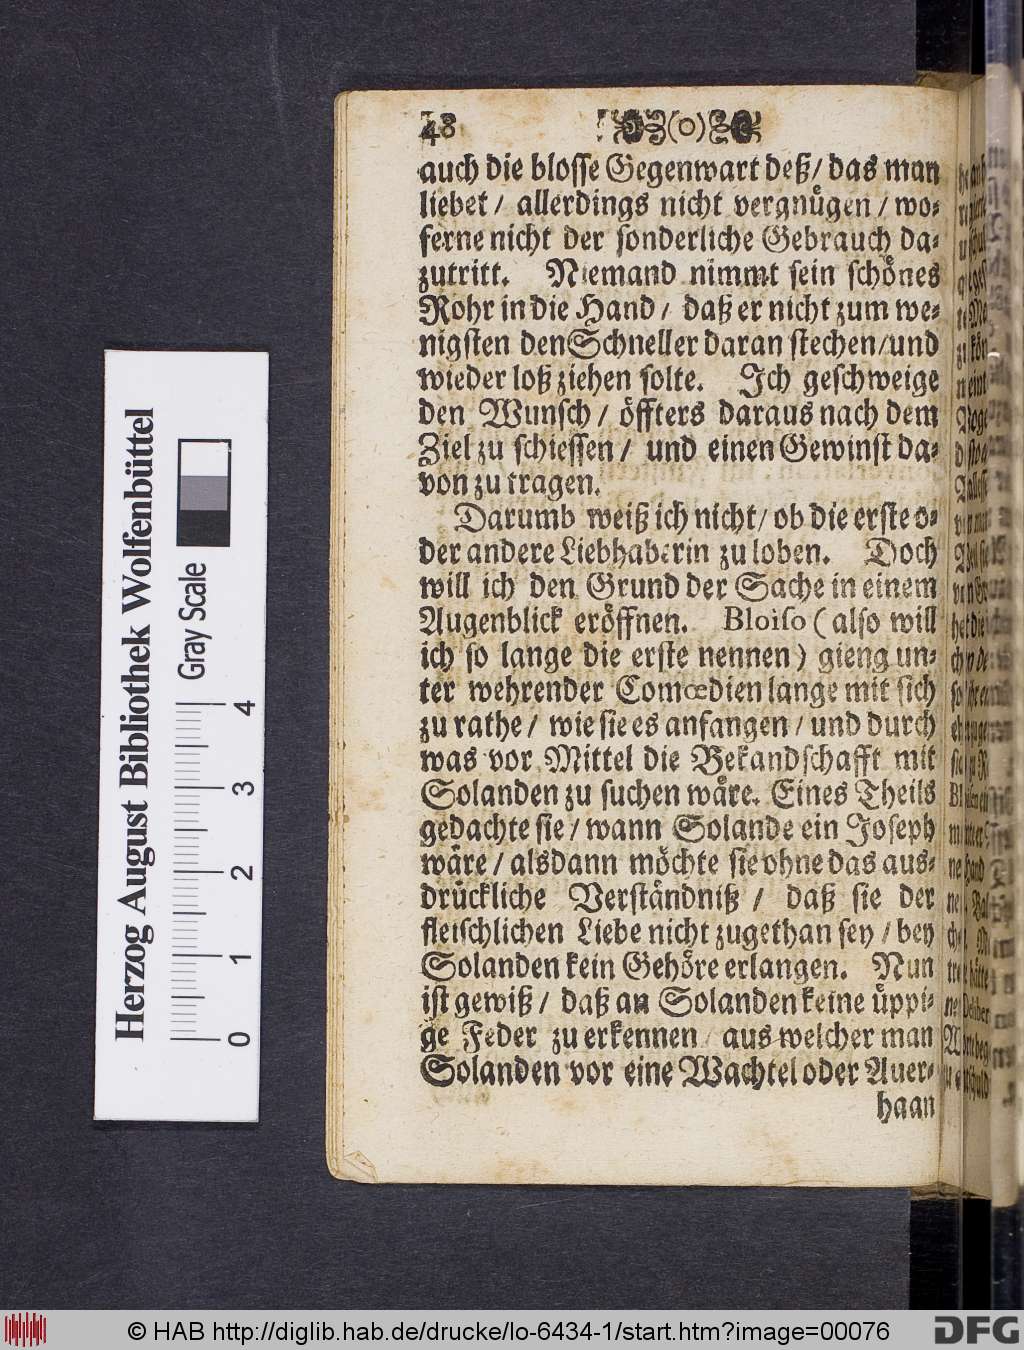 48 (o)
auch die blosse Gegenwart deß / das man
liebet / allerdings nicht vergnügen / wo-
ferne nicht der sonderliche Gebrauch da-
zutritt. Niemand nimmt sein schönes
Rohr in die Hand / daß er nicht zum we-
nigsten den Schneller daran stechen / und
wieder loß ziehen solte. Ich geschweige
den Wunsch / öffters daraus nach dem
Ziel zu schiessen / und einen Gewinst da-
von zu tragen.
Darumb weiß ich nicht / ob die erste o-
der andere Liebhaberin zu loben. Doch
will ich den Grund der Sache in einem
Augenblick eröffnen. Bloiso ( also will
ich so lange die erste nennen ) gieng un-
ter wehrender Comœdien lange mit sich
zu rathe / wie sie es anfangen / und durch
was vor Mittel die Bekandschafft mit
Solanden zu suchen wäre. Eines Theils
gedachte sie / wann Solande ein Joseph
wäre / alsdann möchte sie ohne das aus-
drückliche Verständniß / daß sie der
fleischlichen Liebe nicht zugethan sey / bey
Solanden kein Gehöre erlangen. Nun
ist gewiß / daß an Solanden keine üppi-
ge Feder zu erkennen / aus welcher man
Solanden vor eine Wachtel oder Auer-
haan
Herzog August Bibliothek Wolfenbüttel
Gray Scale
0 1 2 3 4
© HAB http://diglib.hab.de/drucke/lo-6434-1/start.htm?image=00076
DFG